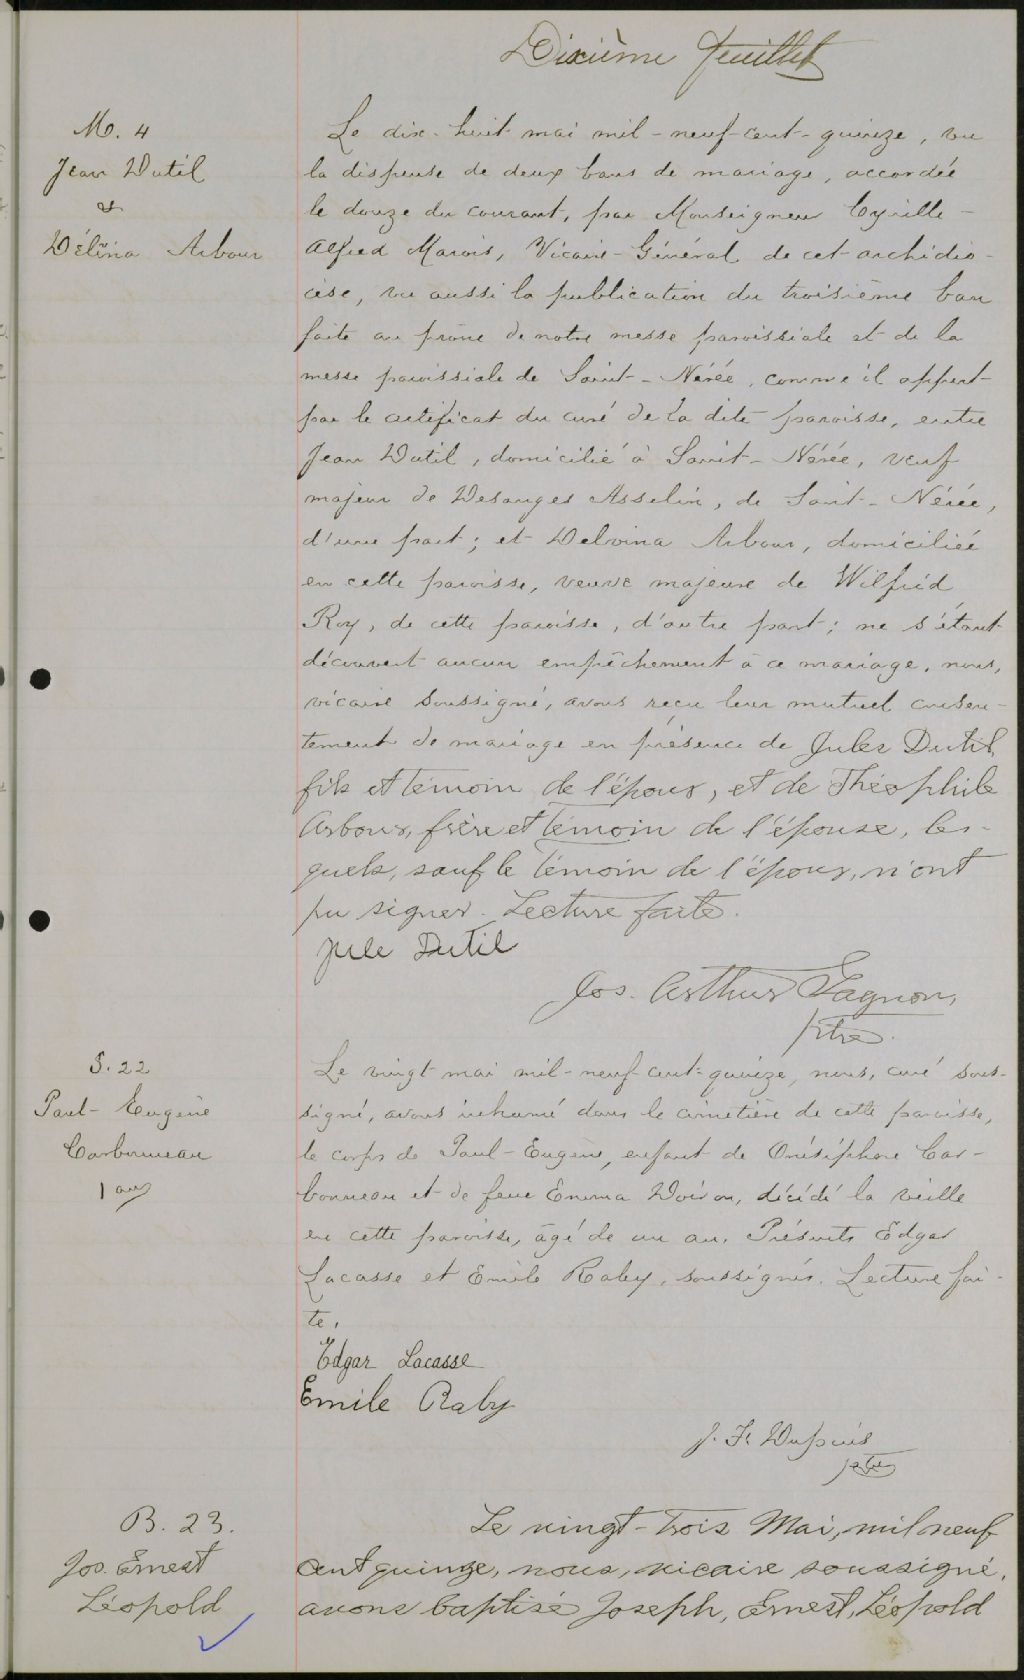 Dixième feuillet
M. 4
Jean Dutil
&
Délina Arbour
Le dix-huit mai mil-neuf-cent-quinze, vu
la dispense de deux bans de mariage, accordée
le douze du courant, par Monseigneur Cyrille-
Alfred Marois, Vicaire-Général de cet archidio-
cèse, vu aussi la publication du troisième ban
faite au prône de notre messe paroissiale et de la
messe paroissiale de Saint-Nérée, comme il appert
par le certificat du curé de la dite paroisse, entre
Jean Dutil, domicilié à Saint-Nérée, veuf
majeur de Desanges Asselin, de Saint-Nérée,
d'une part; et Delvina Arbour, domiciliée
en cette paroisse, veuve majeure de Wilfrid
Roy, de cette paroisse, d'autre part; ne s'étant
découvert aucun empêchement à ce mariage, nous,
vicaire soussigné, avons reçu leur mutuel consen-
tement de mariage en présence de Jules Dutil,
fils et témoin de l'époux, et de Théophile
Arbour, frère et témoin de l'épouse, les-
quels, sauf le témoin de l'époux, n'ont
pu signer. Lecture faite.
Jule Dutil
Jos. Arthur Gagnon,
ptre.
S. 22
Paul-Eugène
Carbonneau
1 an
Le vingt mai mil-neuf-cent-quinze, nous, curé sous-
signé, avons inhumé dans le cimetière de cette paroisse,
le corps de Paul-Eugène, enfant de Onésiphore Car-
bonneau et de feue Emma Voiron, décédé la veille
en cette paroisse, âgé de un an. Présents Edgar
Lacasse et Emile Raby, soussignés. Lecture fai-
te.
Edgar Lacasse
Emile Raby
J. F. Dupuis
ptre
B. 23.
Jos. Ernest
Léopold
Le vingt-trois Mai, mil neuf
cent quinze, nous, vicaire soussigné,
avons baptisé Joseph, Ernest, Léopold